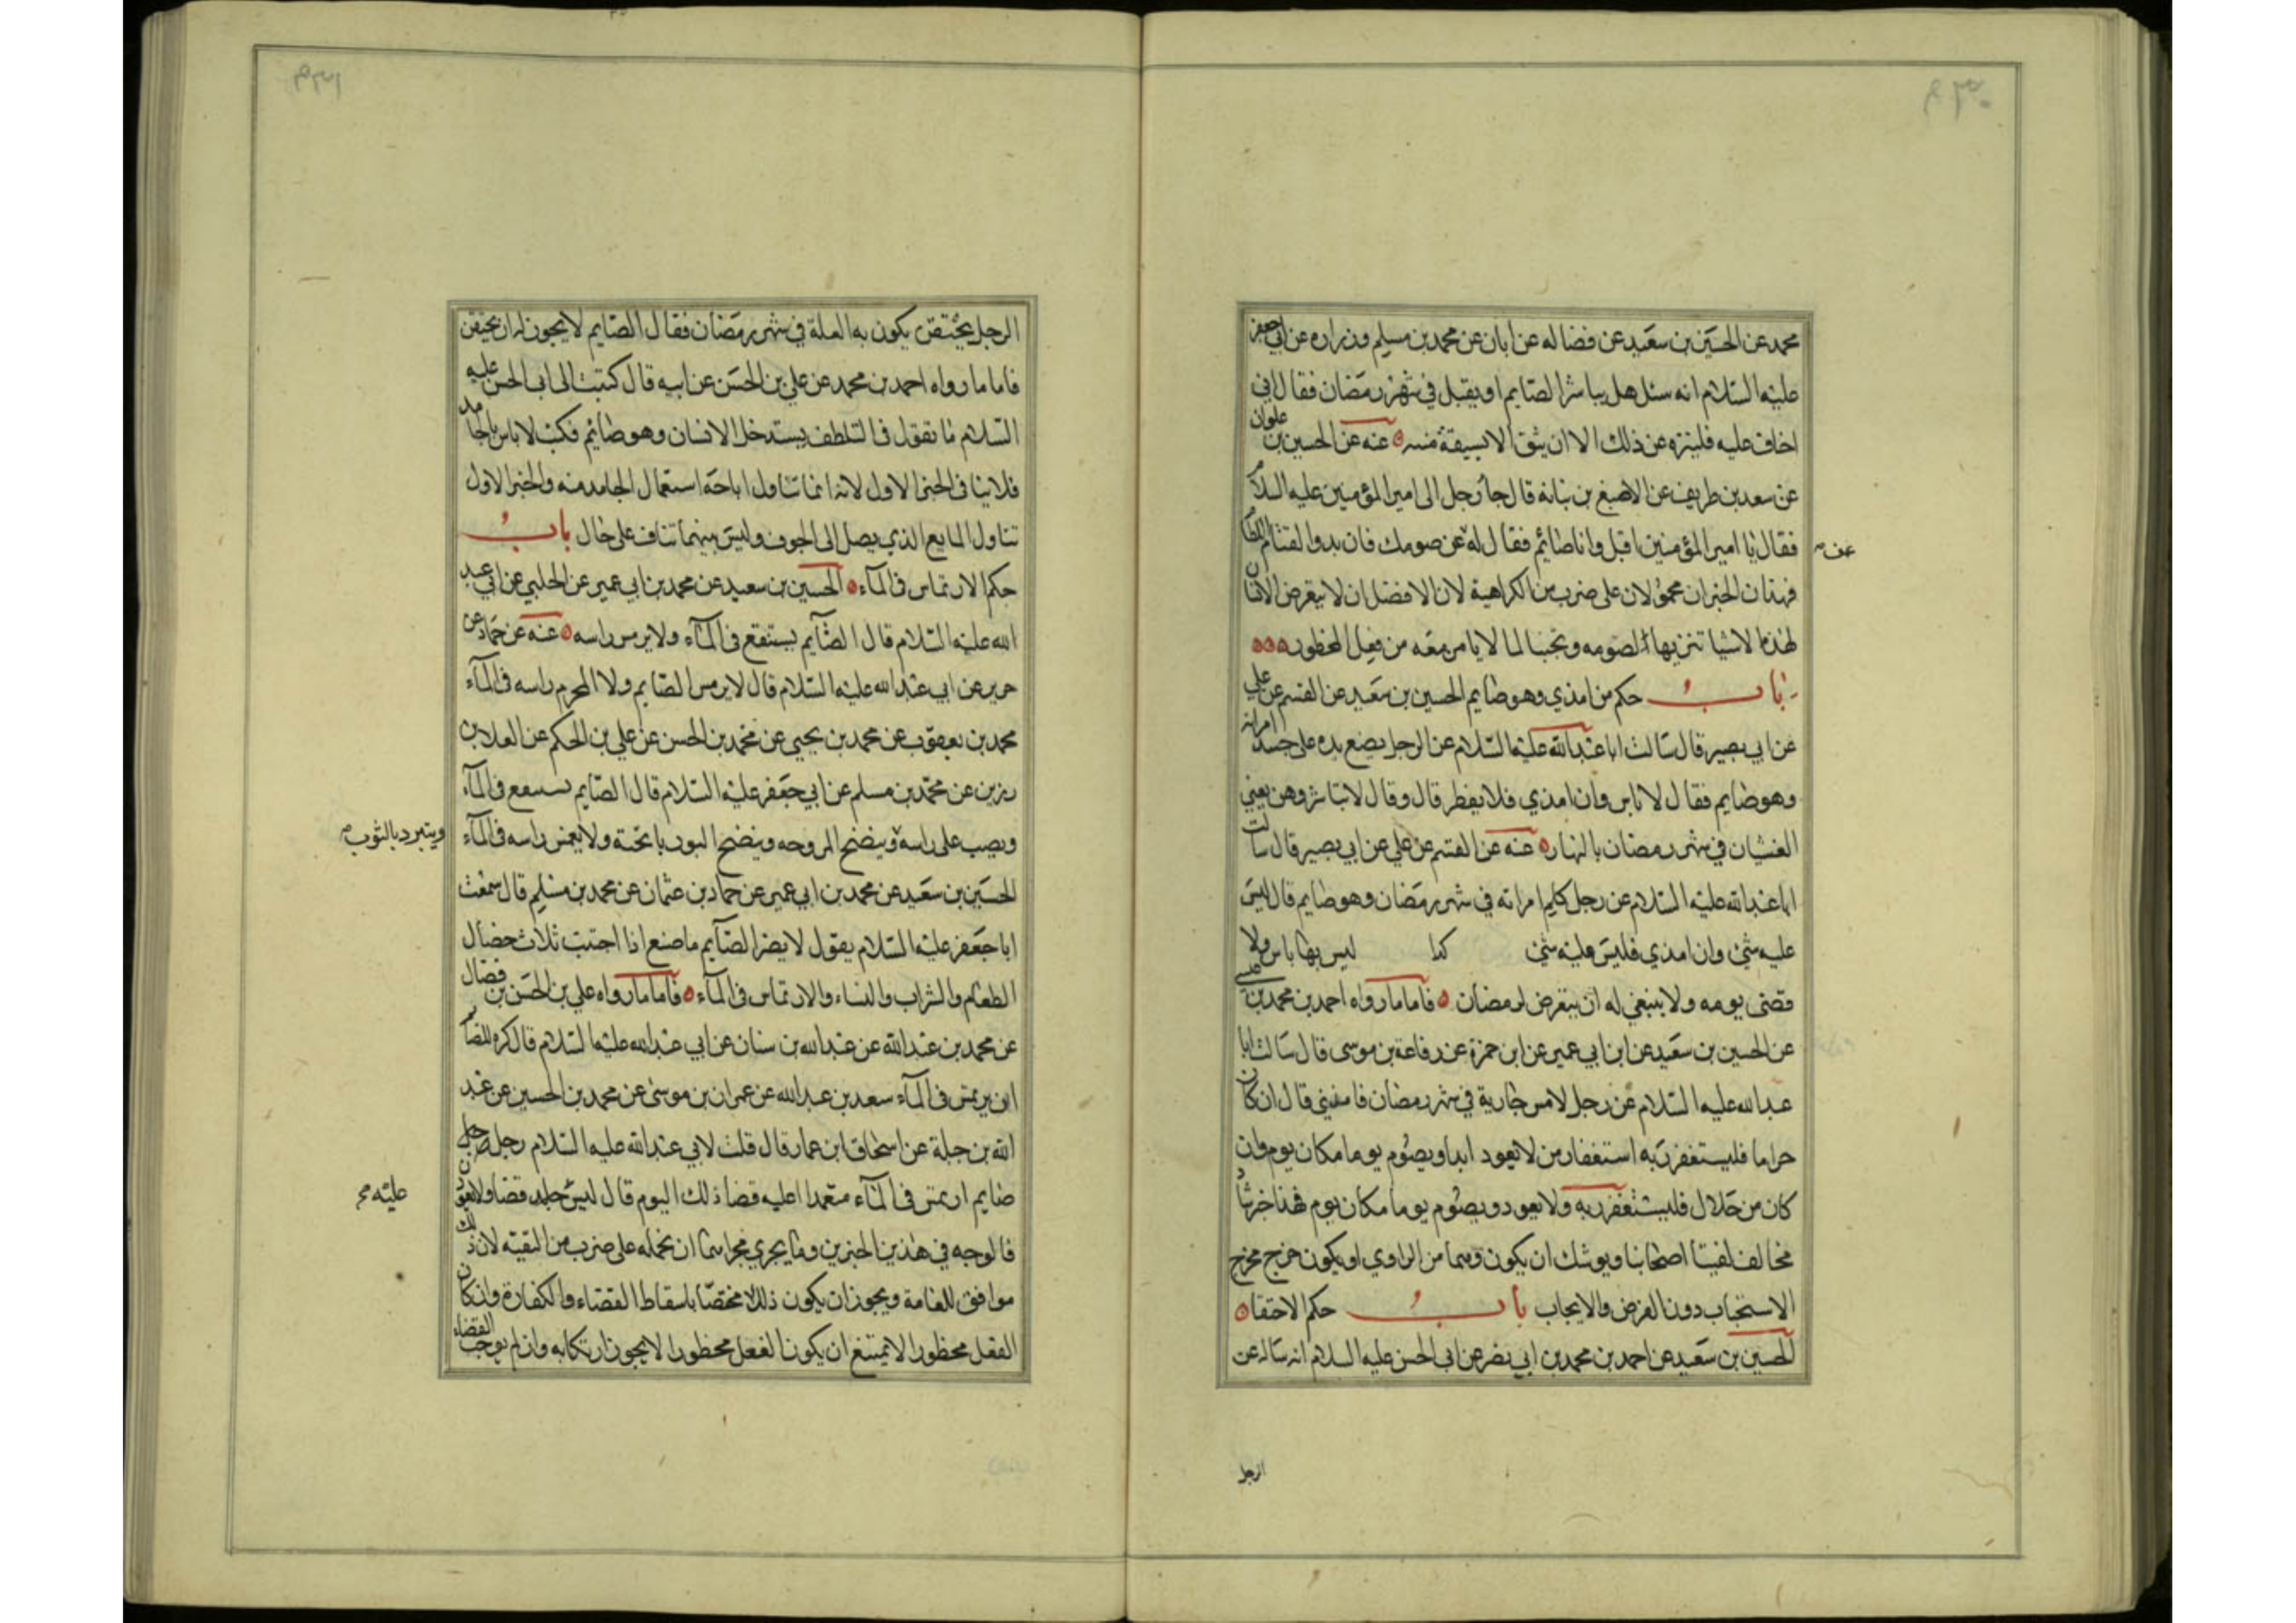 محمد عن الحسين بن سعيد عن فضاله عن ابان عن محمد بن مسلم وزراره عن ابي جعفر
عليه السلام انه سئل هل يباشر الصايم او يقبل في شهر رمضان فقال اني
اخاف عليه فليتنزه عن ذلك الا ان يثق الا يسبقة منيه عنه عن الحسين بن علوان
عن سعد بن طريف عن الاصبغ بن نباته قال جا رجل الى امير المؤمنين عليه السلام
فقال يا امير المؤمنين اقبل وانا صائم فقال له عن صومك فان بدو القتال اللطام
عف
فهذان الخبران محمولان على ضرب من الكراهية لان الافضل ان لا يتعرض الانسان
لهذه الاشيا تنزيها لصومه وتجنبا لما لا يامن معه من فعل المحظور
باب حكم من امذي وهو صايم الحسين بن سعيد عن القسم عن علي
عن ابي بصير قال سالت ابا عبد الله عليه السلام عن الرجل يضع يده على جسد امراته
وهو صايم فقال لا باس وان امذي فلا يفطر قال وقال لا تباشروهن يعني
الغشيان في شهر رمضان بالنهار عنه عن القسم عن علي عن ابي بصير قال سالت
ابا عبد الله عليه السلام عن رجل كلم امراته في شهر رمضان وهو صايم قال ليس
عليه شئ وان امذي فليس عليه شئ كذا ليس بها باس ولا
قضى يومه ولا ينبغي له ان يتعرض لرمضان فاما مارواه احمد بن محمد بن عيسى
عن الحسين بن سعيد عن ابن ابي عمير عن ابن حمزة عن رفاعة بن موسى قال سالت ابا
عبد الله عليه السلام عن رجل لامس جارية في شهر رمضان فامذى قال ان كان
حراما فليستغفر ربه استغفار من لا يعود ابدا ويصوم يوما مكان يوم وان
كان من حلال فليستغفر ربه ولا يعود ويصوم يوما مكان يوم فهذا خبر شاذ
مخالف لفتيا اصحابنا ويوشك ان يكون وهما من الراوي او يكون خرج مخرج
الاستحباب دون الفرض والايجاب باب حكم الاحتقان
الحسين بن سعيد عن احمد بن محمد بن ابي نصر عن ابي الحسن عليه السلام انه ساله عن
الرجل
الرجل يحتقن يكون به العلة في شهر رمضان فقال الصايم لا يجوز له ان يحتقن
فاما ما رواه احمد بن محمد عن علي بن الحسن عن ابيه قال كتبت الى ابي الحسن عليه
السلام ما تقول في التلطف يستدخل الانسان وهو صائم فكتب لا باس بالجامد
فلا ينافى الخبر الاول لانه انما تناول اباحة استعمال الجامد منه والخبر الاول
تناول المايع الذي يصل الى الجوف وليس بينهما تناف على حال باب
حكم الارتماس في المآء الحسين بن سعيد عن محمد بن ابي عمير عن الحلبي عن ابي عبد
الله عليه السلام قال الصآيم يستنقع في المآء ولا يرمس راسه عنه عن حماد عن
حريز عن ابي عبد الله عليه السلام قال لا يرمس الصايم ولا المحرم راسه في المآء
محمد بن يعقوب عن محمد بن يحيى عن محمد بن الحسن عن علي بن الحكم عن العلا بن
رزين عن محمد بن مسلم عن ابي جعفر عليه السلام قال الصايم يستنقع في المآء
ويصب على راسه وينضح المروحه وينضح البوريا تحته ولا يغمس راسه في المآء
ويتبرد بالثوب
الحسين بن سعيد عن محمد بن ابي عمير عن حماد بن عثمان عن محمد بن مسلم قال سمعت
ابا جعفر عليه السلام يقول لا يضر الصآيم ما صنع اذا اجتنب ثلاث خصال
الطعام والشراب والنساء والارتماس في المآء فاما مارواه علي بن الحسن بن فضال
عن محمد بن عبد الله عن عبد الله بن سنان عن ابي عبد الله عليه السلام قال كره للصايم
ان يرتمس في المآء سعد بن عبد الله عن عمران بن موسى عن محمد بن الحسين عن عبد
الله بن جبلة عن اسحاق ابن عمار قال قلت لابي عبد الله عليه السلام رجل
صايم ارتمس في المآء متعمدا اعليه قضا ذلك اليوم قال ليس عليه قضا ولا يعودن
عليه
فالوجه في هذين الخبرين وما يجري مجراهما ان نحمله على ضرب من التقيه لان ذلك
موافق للعامة ويجوز ان يكون ذلك مختصا باسقاط القضاء والكفارة وان كان
الفعل محظورا لا يمتنع ان يكون الفعل محظورا لا يجوز ارتكابه وان لم يوجب القضاء